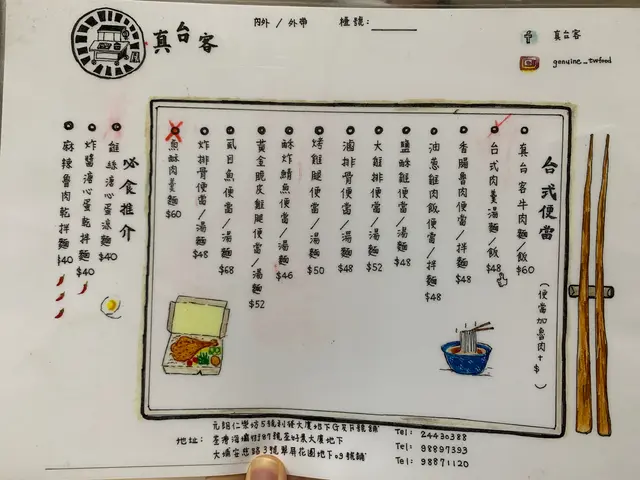 真台客
內外 / 外帶 檯號：
真台客
genuine_twfood
台式便當
(便當加魯肉+$ )
真台客牛肉麵/飯 $60
台式肉羹湯麵/飯 $48
香腸魯肉便當/拌麵 $48
油蔥雞肉飯便當/拌麵 $48
鹽酥雞便當/湯麵 $48
大雞排便當/湯麵 $52
滷排骨便當/湯麵 $48
烤雞腿便當/湯麵 $50
酥炸鯖魚便當/湯麵 $46
黃金脆皮雞腿便當/湯麵 $52
虱目魚便當/湯麵 $68
炸排骨便當/湯麵 $48
魚酥肉羹麵 $60
必食推介
雞絲溏心蛋湯麵 $40
炸醬溏心蛋乾拌麵 $40
麻辣魯肉乾拌麵 $40
元朗仁樂坊5號利發大廈地下G及 號舖 Tel: 24430388
地址: 荃灣海壩街 號荃好素大廈地下 Tel: 98897393
大埔安慈路3號翠屏花園地下 號舖 Tel: 98871120